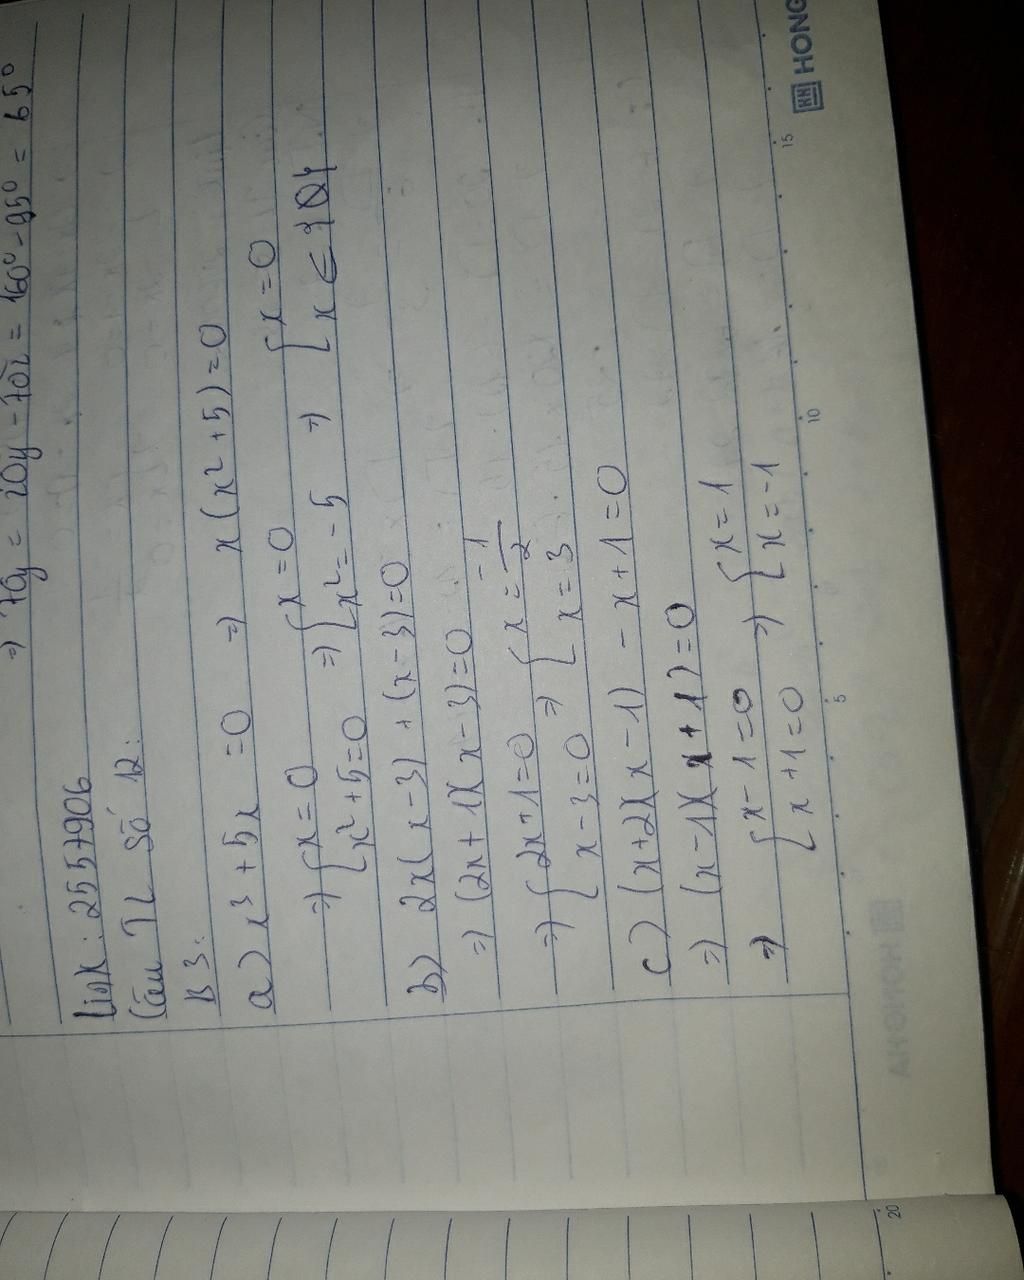 => tOy = xOy - tOz = 160° - 95° = 65°
link: 2557906
Câu TL Số 12:
B3:
a) x³ + 5x = 0 => x(x² + 5) = 0
=> [x = 0 => [x = 0 => [x = 0
[x² + 5 = 0 [x² = -5 [x ∈ {Ø}
b) 2x(x - 3) + (x - 3) = 0
=> (2x + 1)(x - 3) = 0
=> [2x + 1 = 0 => [x = -1/2
[x - 3 = 0 [x = 3
c) (x + 2)(x - 1) - x + 1 = 0
=> (x - 1)(x + 1) = 0
=> [x - 1 = 0 => [x = 1
[x + 1 = 0 [x = -1
5 10 15
HONG
HONGHA
20